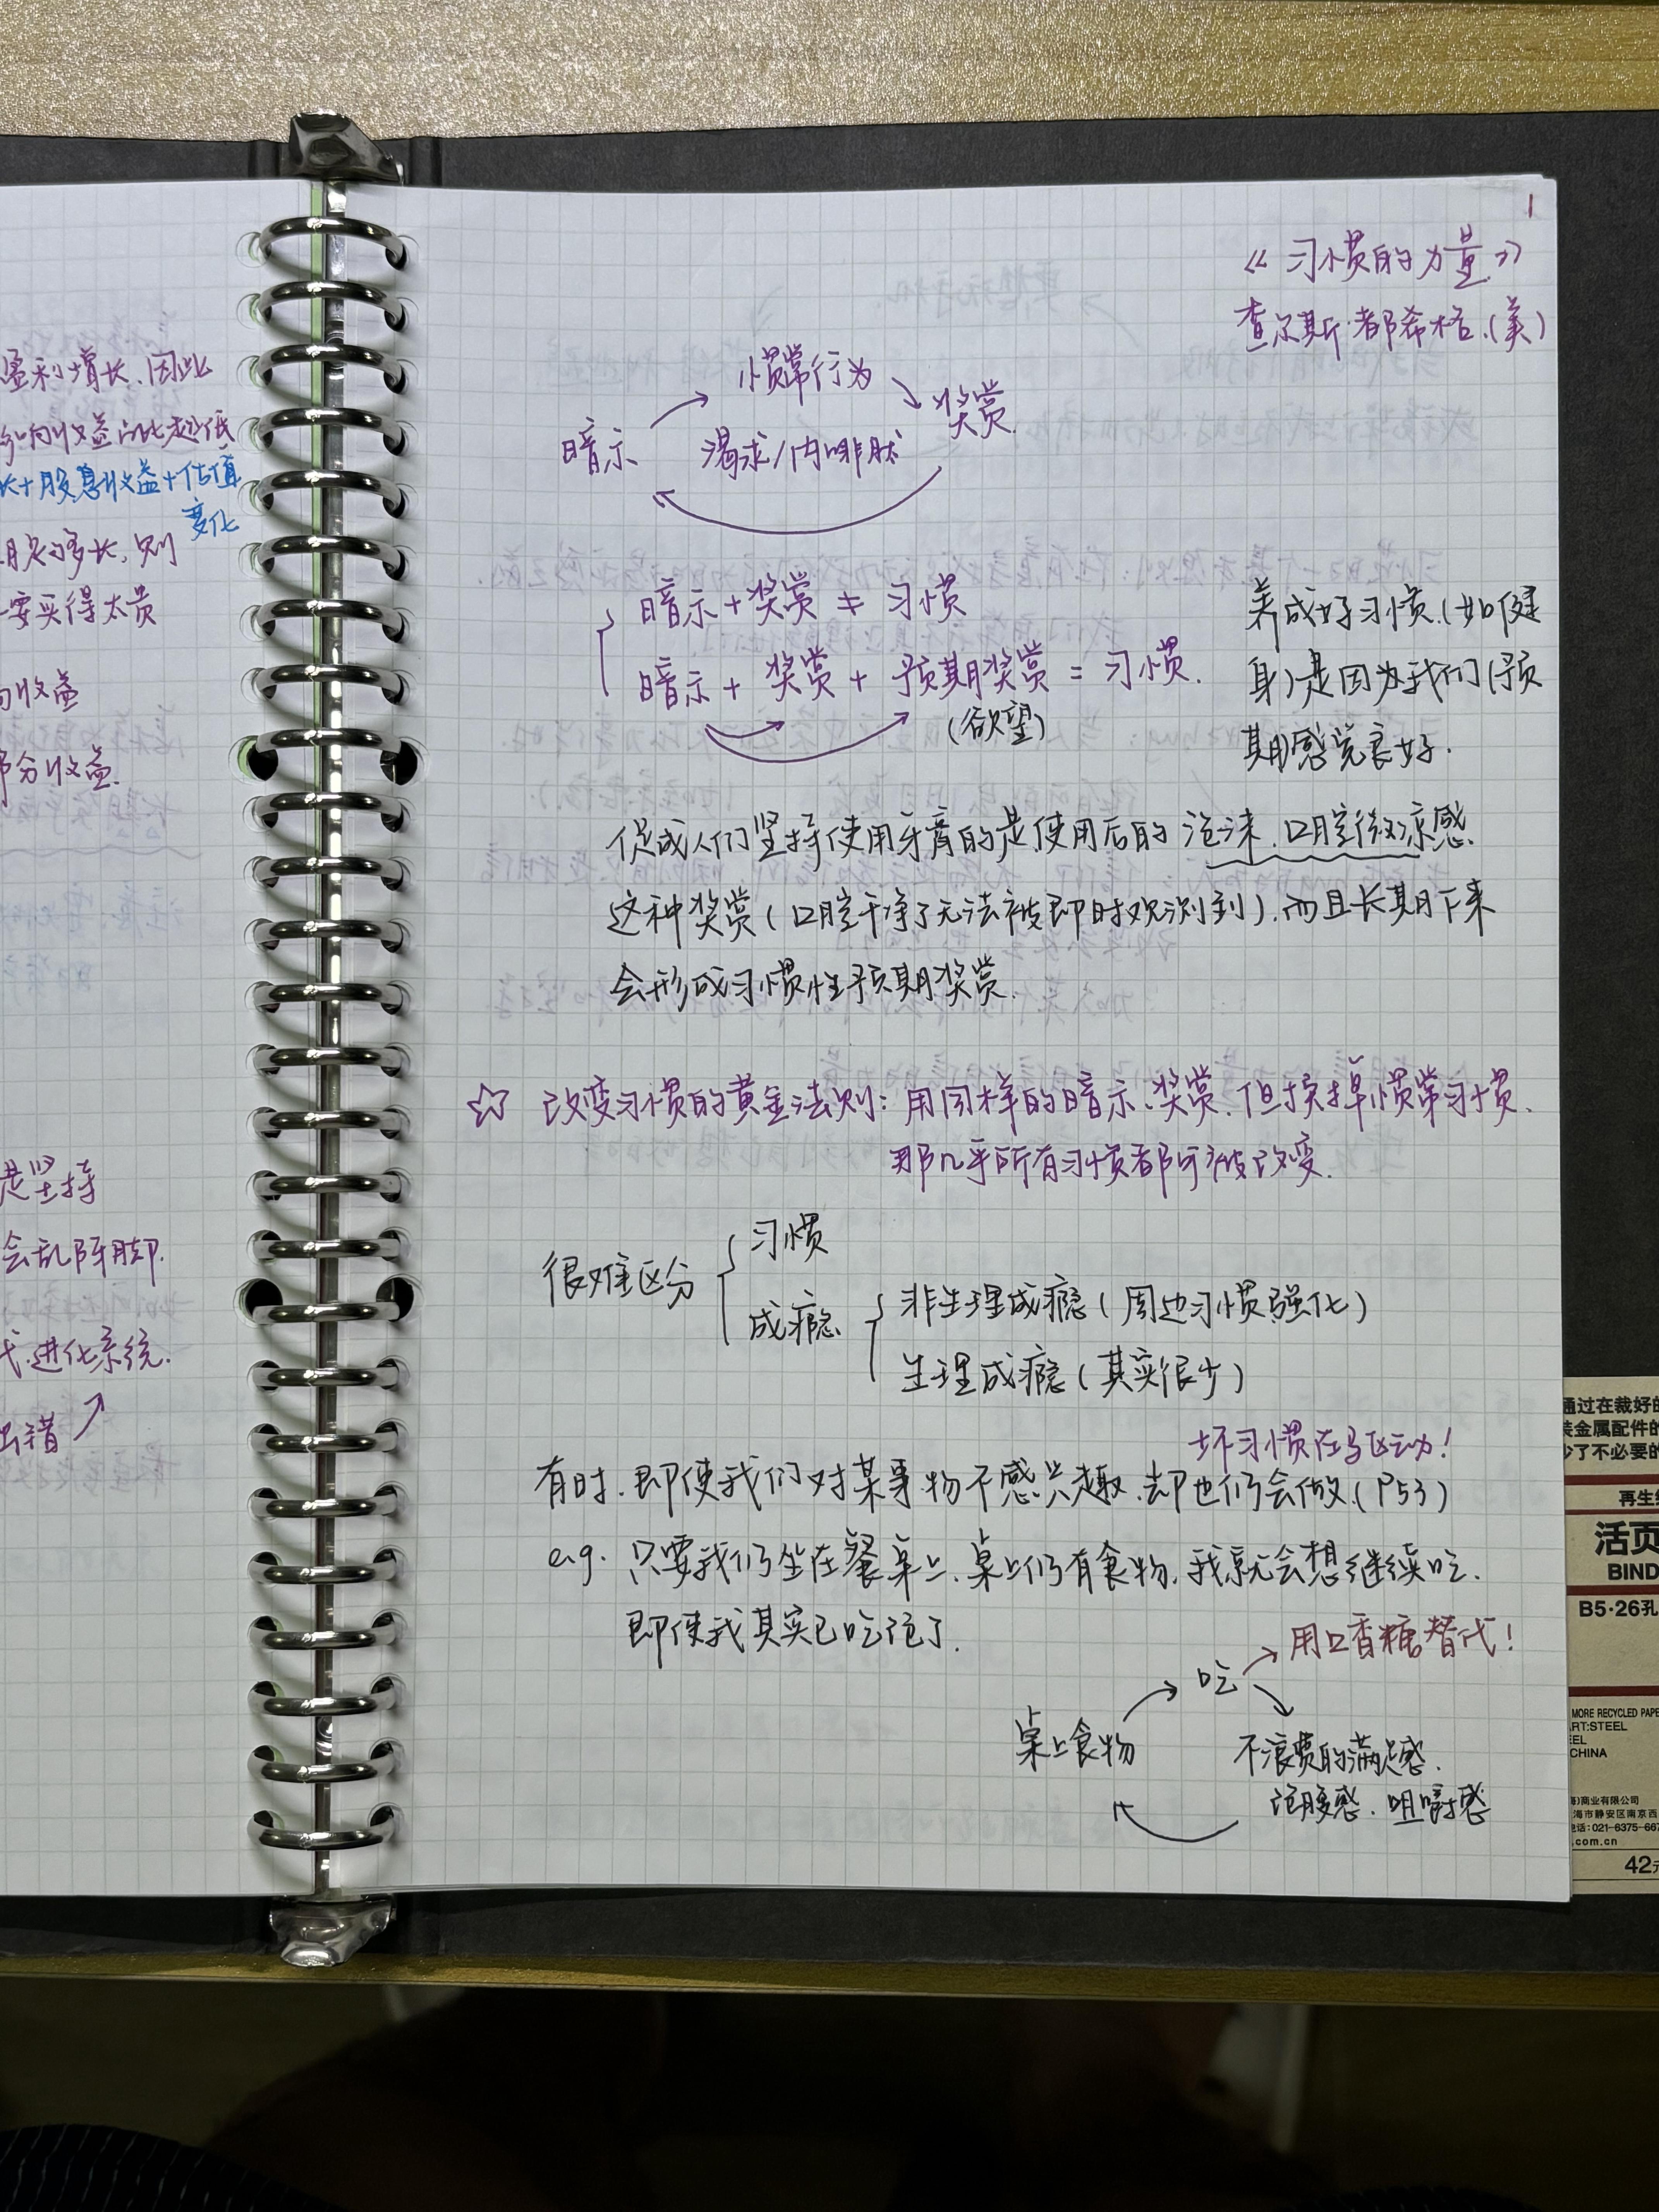 盈利增长.因此
收益的比起低
长+股息收益+估值
变化
的多长,则
要买得太贵
收益
部分收益.
是坚持
会乱阵脚.
代.进化系统.
出错 ↗
1
《习惯的力量》
查尔斯·都希格.(美)
惯常行为
奖赏.
暗示
渴求/内啡肽
暗示+奖赏≠习惯
暗示+奖赏+预期奖赏=习惯.
(欲望)
养成好习惯.(如健
身)是因为我们预
期感觉良好.
促成人们坚持使用牙膏的是使用后的泡沫.口腔微凉感.
这种奖赏(口腔干净了无法被即时观测到).而且长期下来
会形成习惯性预期奖赏.
☆ 改变习惯的黄金法则:用同样的暗示、奖赏.但换掉惯常习惯.
那几乎所有习惯都可被改变.
很难区分
习惯
成瘾
非生理成瘾(周边习惯强化)
生理成瘾(其实很少)
坏习惯在驱动!
有时.即使我们对某事物不感兴趣.却也仍会做.(P53)
e.g. 只要我们坐在餐桌上.桌上仍有食物.我就会想继续吃.
即使我其实已吃饱了.
用口香糖替代!
吃
桌上食物
不浪费的满足感.
饱腹感.咀嚼感
通过在裁好的
装金属配件的
少了不必要的
再生纸
活页
BIND
B5·26孔
MORE RECYCLED PAPE
RT:STEEL
EL
CHINA
)商业有限公司
海市静安区南京西
电话:021-6375-667
.com.cn
42元